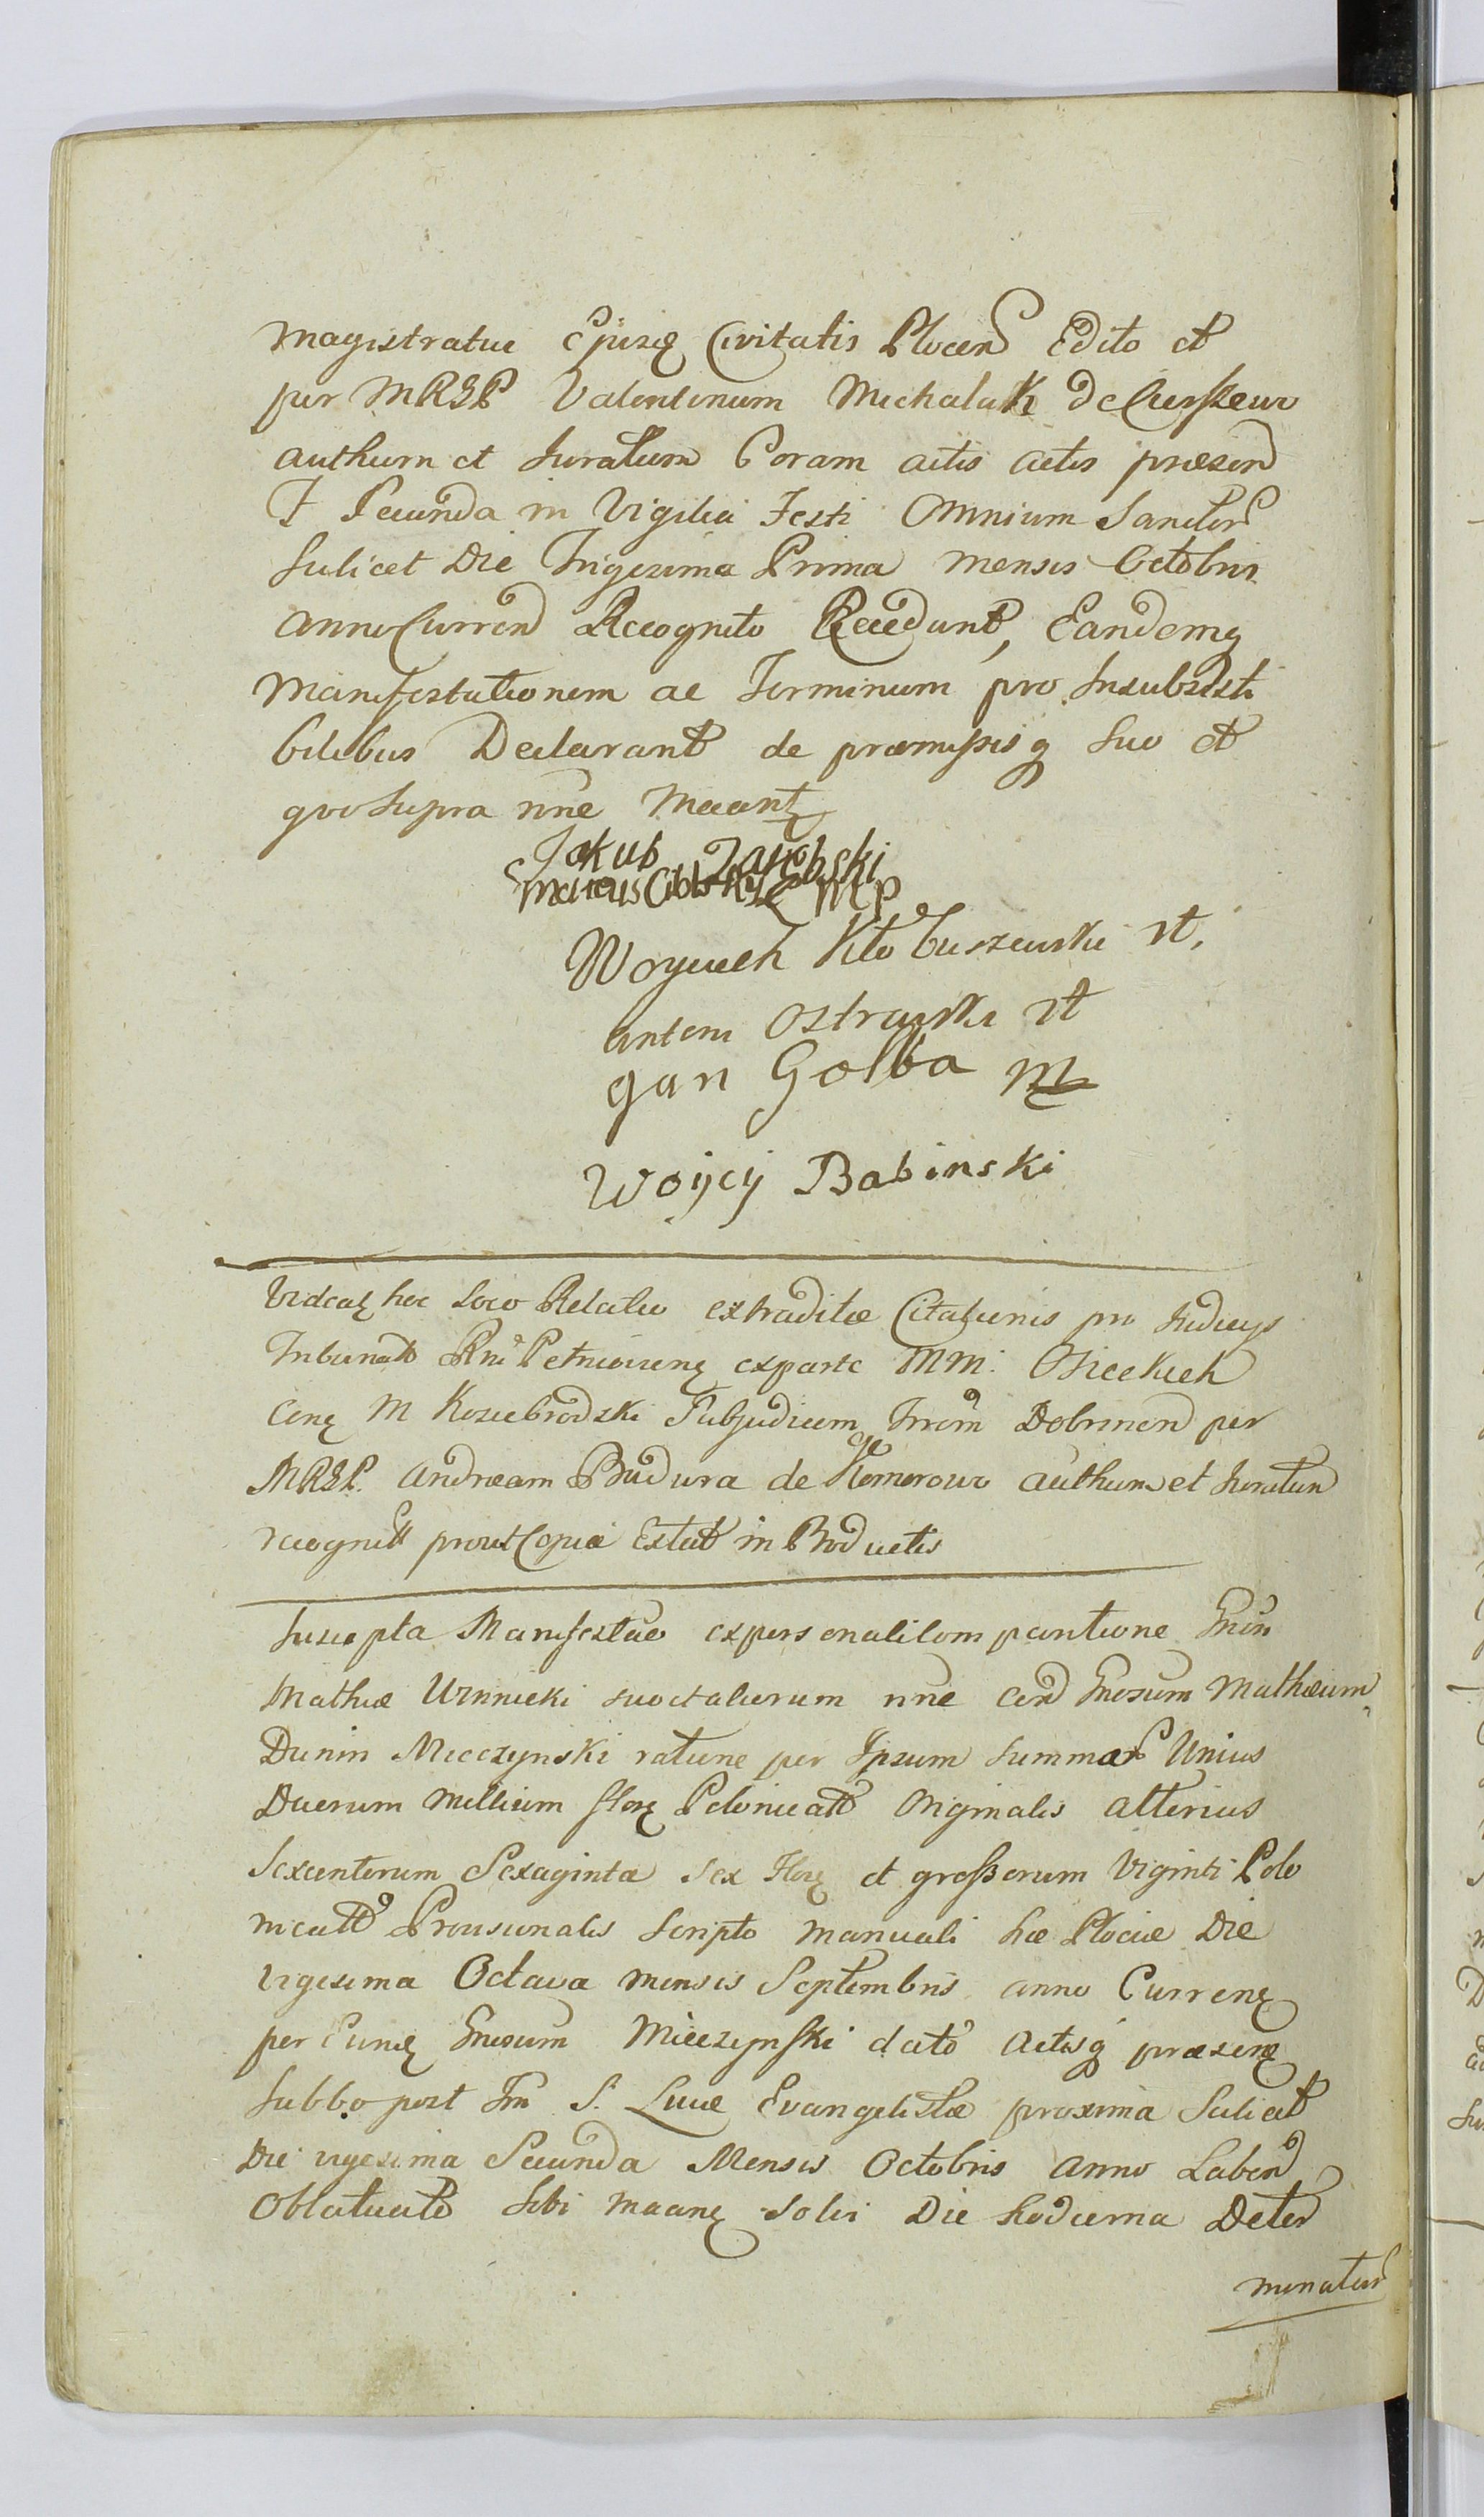 Magistratui Ejusq Civitatis Plocen Edito et
per MRSP Valentinum Michalak de
authum et Juratum Coram actis actis præsen
F Secunda in Vigilia Festi Omnium Sanctor
Scilicet Die Trigesima Prima mensis Octobris
anno Curren Recognito Recedunt, Eandemq
Manifestationem ac Terminum pro Insubsisti
bilibus Declarant de præmissisq suo et
quo supra nne Maant
Jakub
MP
Woyciech Kłobuszewski
antoni Ostrowski
Jan Golba m
Woycij Babinski
Videat hoc loco Relatio extraditæ Citationis pro Judicys
Tribunalt Rni Petricoviens exparte MM: Osieckich
cone M Kosiebrodzki Subjudicem Dobrinen per
MRSP. Andream Budura de Komorowo authum et Juratum
recognitt prout Copia Extat in Productis
Suscepta Manifestao expersonali Comparitione Gnsi
Mathiæ Uznnicki suo et aliorum nne con Gnosum Mathæum
Dunin Mieczynski ratione per Ipsum Summar Unius
Duorum Millium flor Polonicatt Originalis alterius
Sexcentorum Sexaginta sex Flor et grossorum Viginti Polo
nicatt Provisionalis Scripto manuali hæ Plociæ Die
vigesima Octava mensis Septembris anno Curren
per Eund Gnosum Mieczynski dato actisq præsen
Sabbo post Fm S. Lucæ Evangelistæ proxima Scilicet
Die vigesima Secunda Mensis Octobris anno Laben
Oblatuato Sibi maan Solvi Die hodierna Deter
minatur